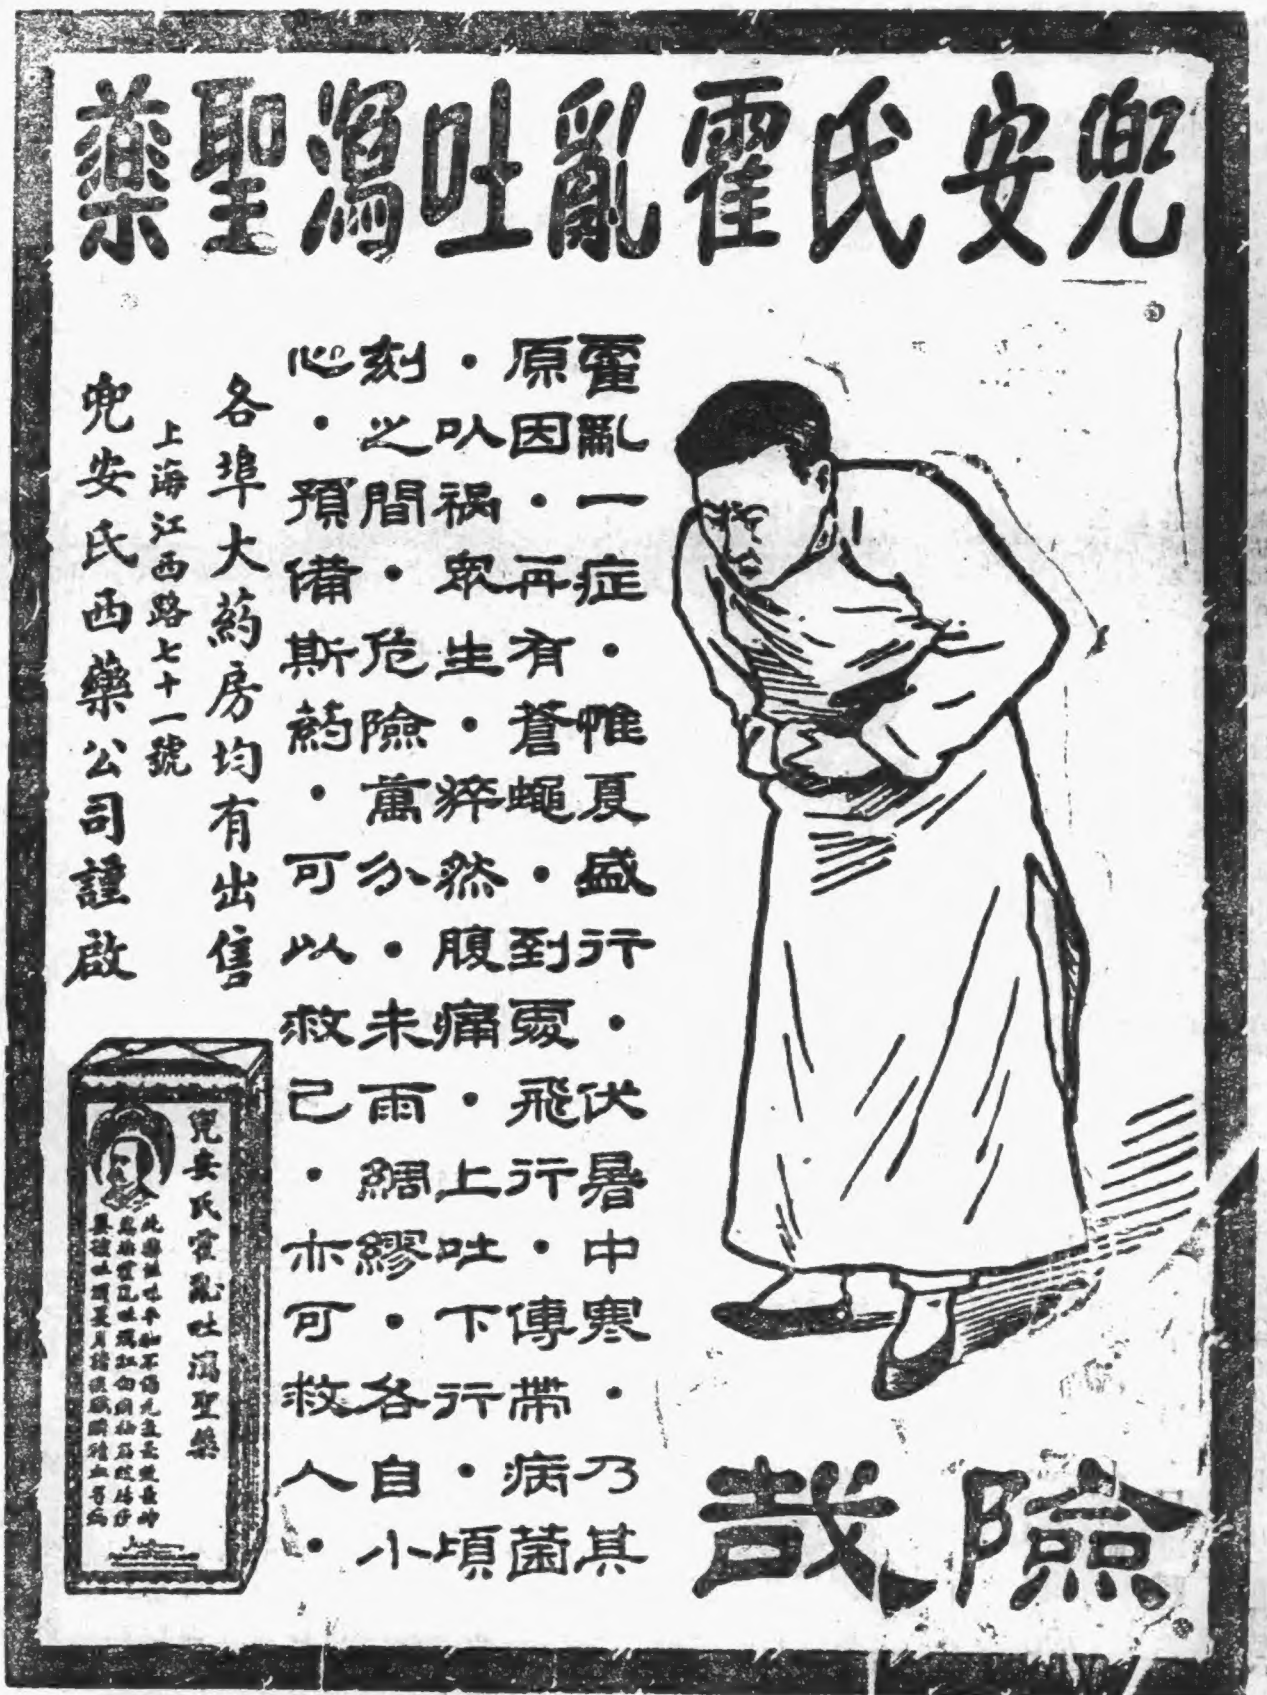 兜安氏霍亂吐瀉聖藥
霍亂一症・惟夏盛行・伏暑中寒・乃其
原因・再有蒼蠅・到處飛行・傳帶病菌
・㕥禍眾生・猝然腹痛・上吐下行・頃
刻之間・危險萬分・未雨綢繆・各自小
心・預備斯葯・可以救己・亦可救人・
險哉
各埠大葯房均有出售
上海江西路七十一號
兜安氏西藥公司謹啟
兜安氏霍亂吐瀉聖藥